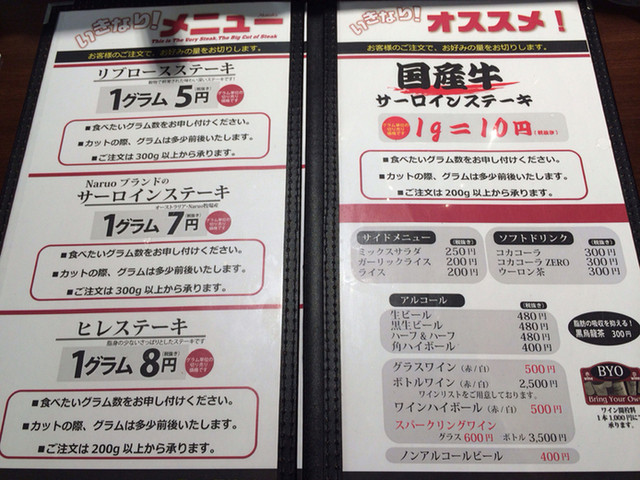 いきなり!メニュー
This is The Very Steak, The Big Cut of Steak
お客様のご注文で、お好みの量をお切りします。
リブロースステーキ
1グラム 5円
(税抜き)
グラム単位の切り売り価格です
■食べたいグラム数をお申し付けください。
■カットの際、グラムは多少前後いたします。
■ご注文は300g以上から承ります。
Naruo ブランドの
サーロインステーキ
オーストラリア・Naruo牧場産
1グラム 7円
(税抜き)
グラム単位の切り売り価格です
■食べたいグラム数をお申し付けください。
■カットの際、グラムは多少前後いたします。
■ご注文は300g以上から承ります。
ヒレステーキ
脂身の少ないさっぱりとしたステーキです
1グラム 8円
(税抜き)
グラム単位の切り売り価格です
■食べたいグラム数をお申し付けください。
■カットの際、グラムは多少前後いたします。
■ご注文は200g以上から承ります。
いきなり!オススメ!
お客様のご注文で、お好みの量をお切りします。
国産牛
サーロインステーキ
1g=10円(税抜き)
■食べたいグラム数をお申し付けください。
■カットの際、グラムは多少前後いたします。
■ご注文は200g以上から承ります。
サイドメニュー (税抜き)
ミックスサラダ 250円
ガーリックライス 200円
ライス 200円
ソフトドリンク (税抜き)
コカコーラ 300円
コカコーラ ZERO 300円
ウーロン茶 300円
アルコール (税抜き)
生ビール 480円
黒生ビール 480円
ハーフ & ハーフ 480円
角ハイボール 400円
脂肪の吸収を抑える!
黒烏龍茶 300円
グラスワイン(赤/白) 500円
ボトルワイン(赤/白) 2,500円
ワインリストをご用意しております。
ワインハイボール(赤/白) 500円
スパークリングワイン
グラス 600円 ボトル 3,500円
ノンアルコールビール 400円
BYO
Bring Your Own
ワイン開栓料
1本1,000円にて
承ります。